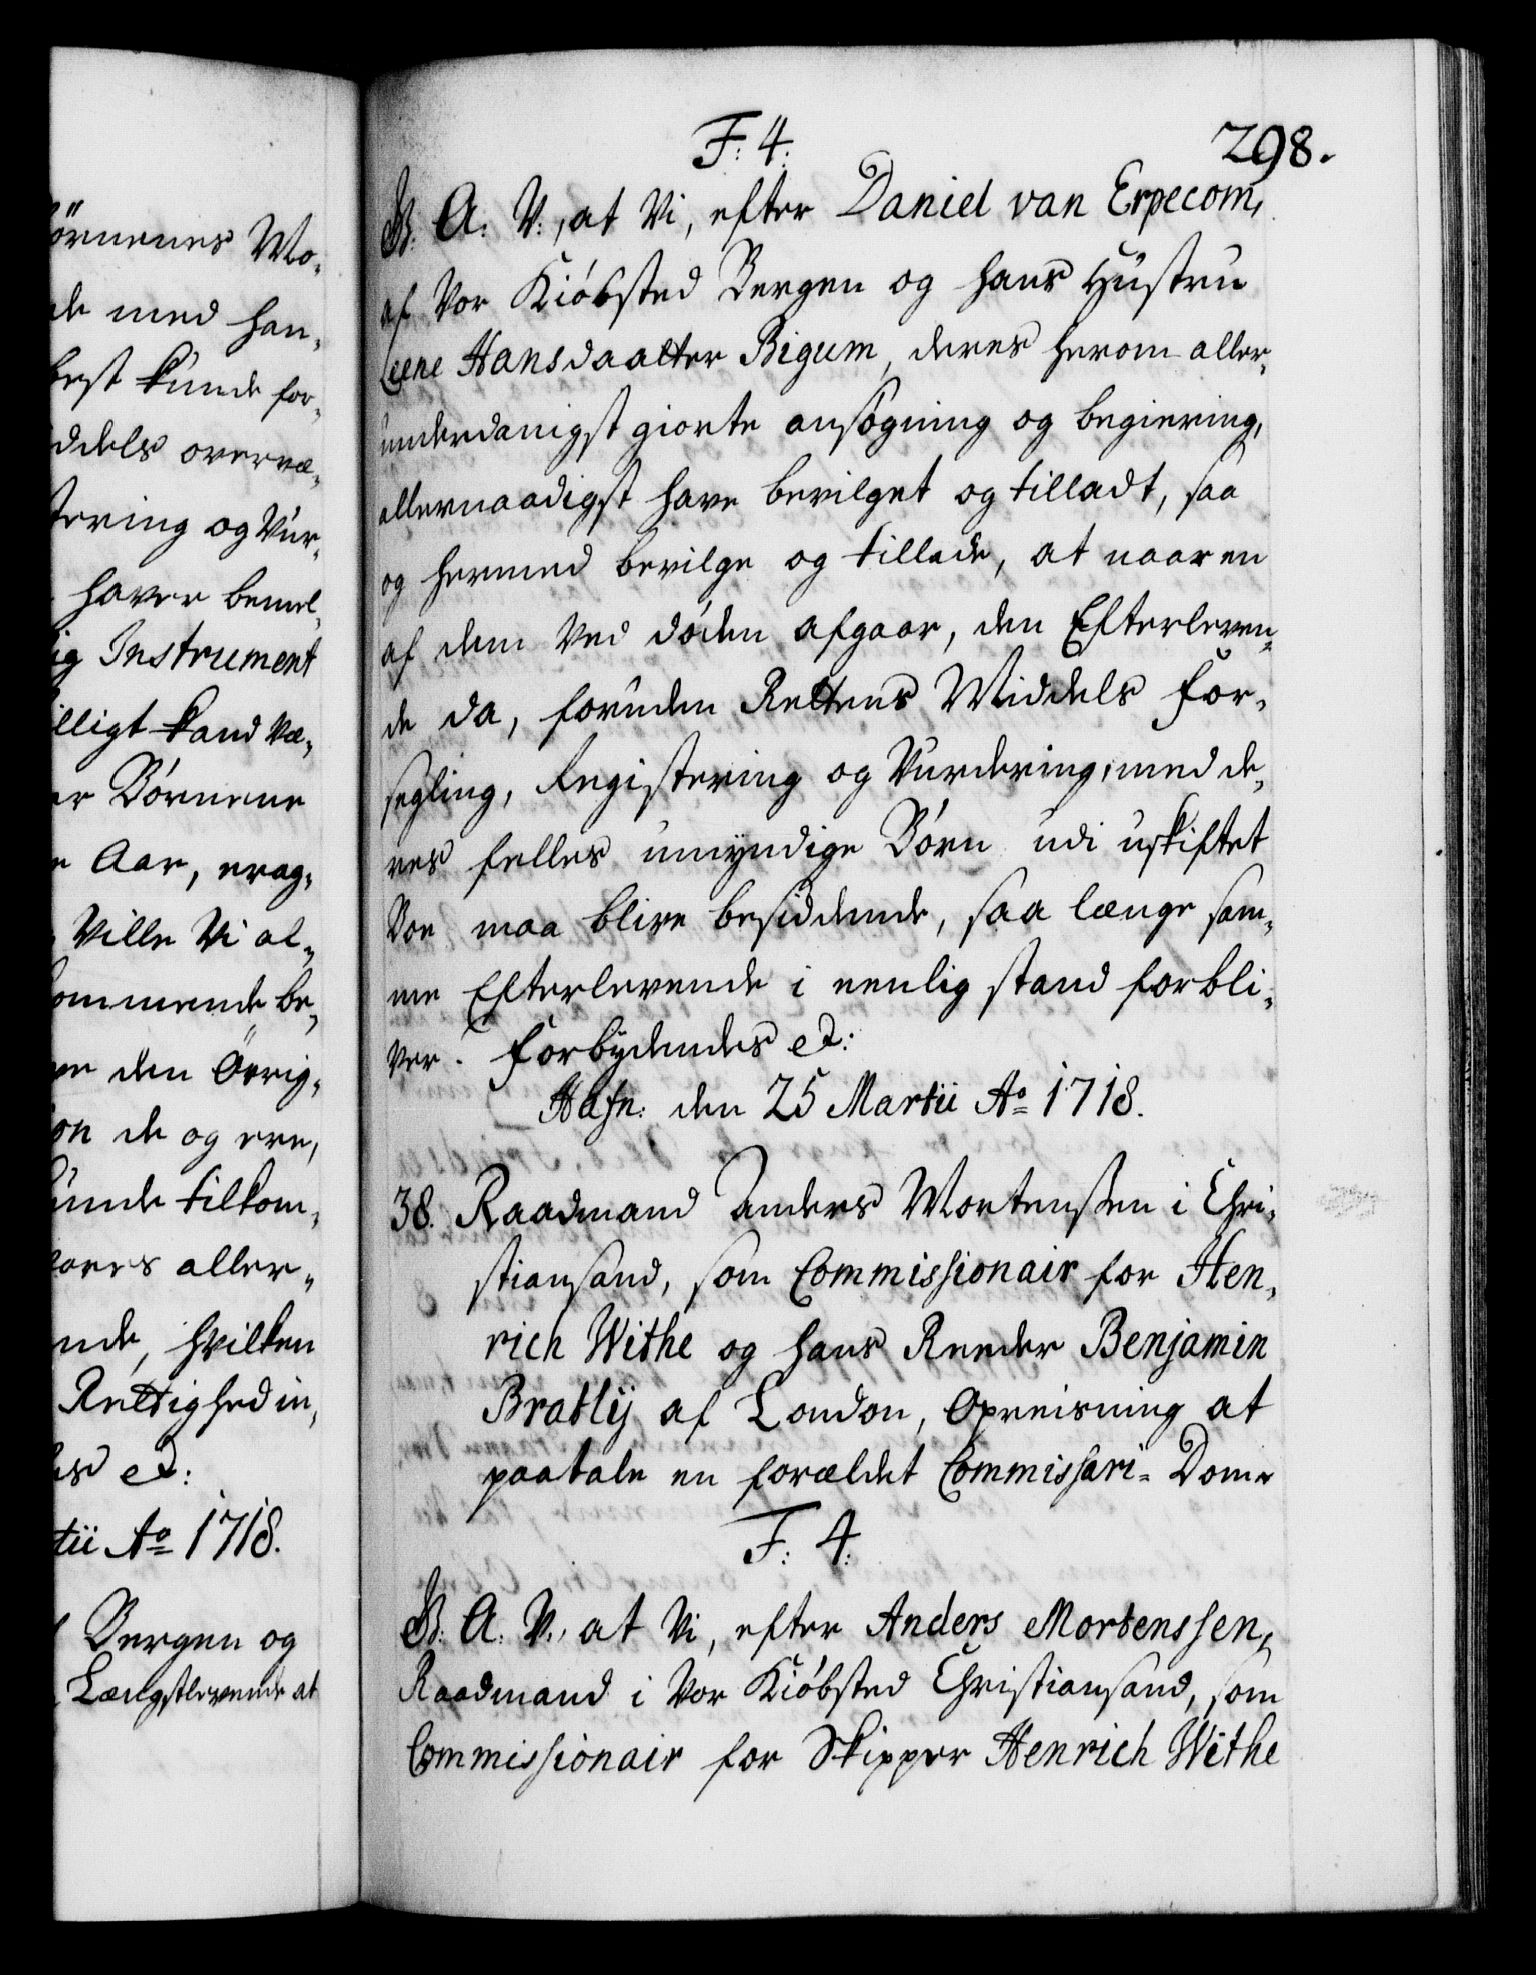 ørnenes Mo-
de med han-
best kunde for-
ddels overvæ-
tering og Vur-
haver bemel-
ig Instrument
illigt kand væ-
er Børnene
Aar, erag-
Ville Vi al-
kommende be-
den Øvrig-
de og ere,
kunde tilkom-
vores aller-
nde, hvilken
Rettighed in-
es etc:
tii Ao 1718.
Bergen og
Længstlevende at
298.
F: 4:
G: A: V:, at Vi, efter Daniel van Erpecom,
af Vor Kiøbsted Bergen og hans Hustru
Lene Hansdaatter Bigum, deres herom aller-
underdanigst giorte ansøgning og begiering,
allernaadigst have bevilget og tilladt, saa
og hermed bevilge og tillade, at naar en
af dem Ved døden afgaar, den Efterleven-
de da, foruden Rettens Middels For-
segling, Registering og Vurdering, med de-
res felles umyndige Børn udi uskiftet
Boe maa blive besiddende, saa længe sam-
me Efterlevende i eenlig stand forbli-
ver. Forbydendes etc:
Hafn: den 25 Martii Ao 1718.
38. Raadmand Anders Mortenssen i Chri-
stiansand, som Commissionair for Hen-
rich Withe og hans Reeder Benjamin
Bratlij af London, Opreisning at
paatale en forældet Commissari- Dom
F: 4:
G: A: V:, at Vi, efter Anders Mortenssen,
Raadmand i Vor Kiøbsted Christiansand, som
Commissionair for Skipper Henrich Withe